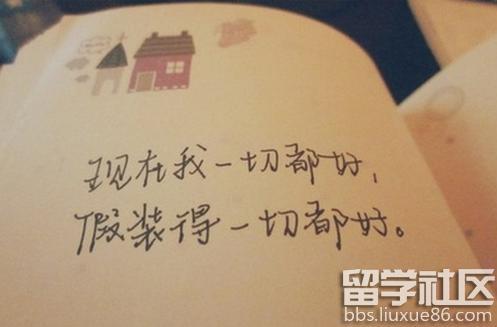 现在我一切都好,
假装得一切都好。
留学社区
bbs.liuxue86.com